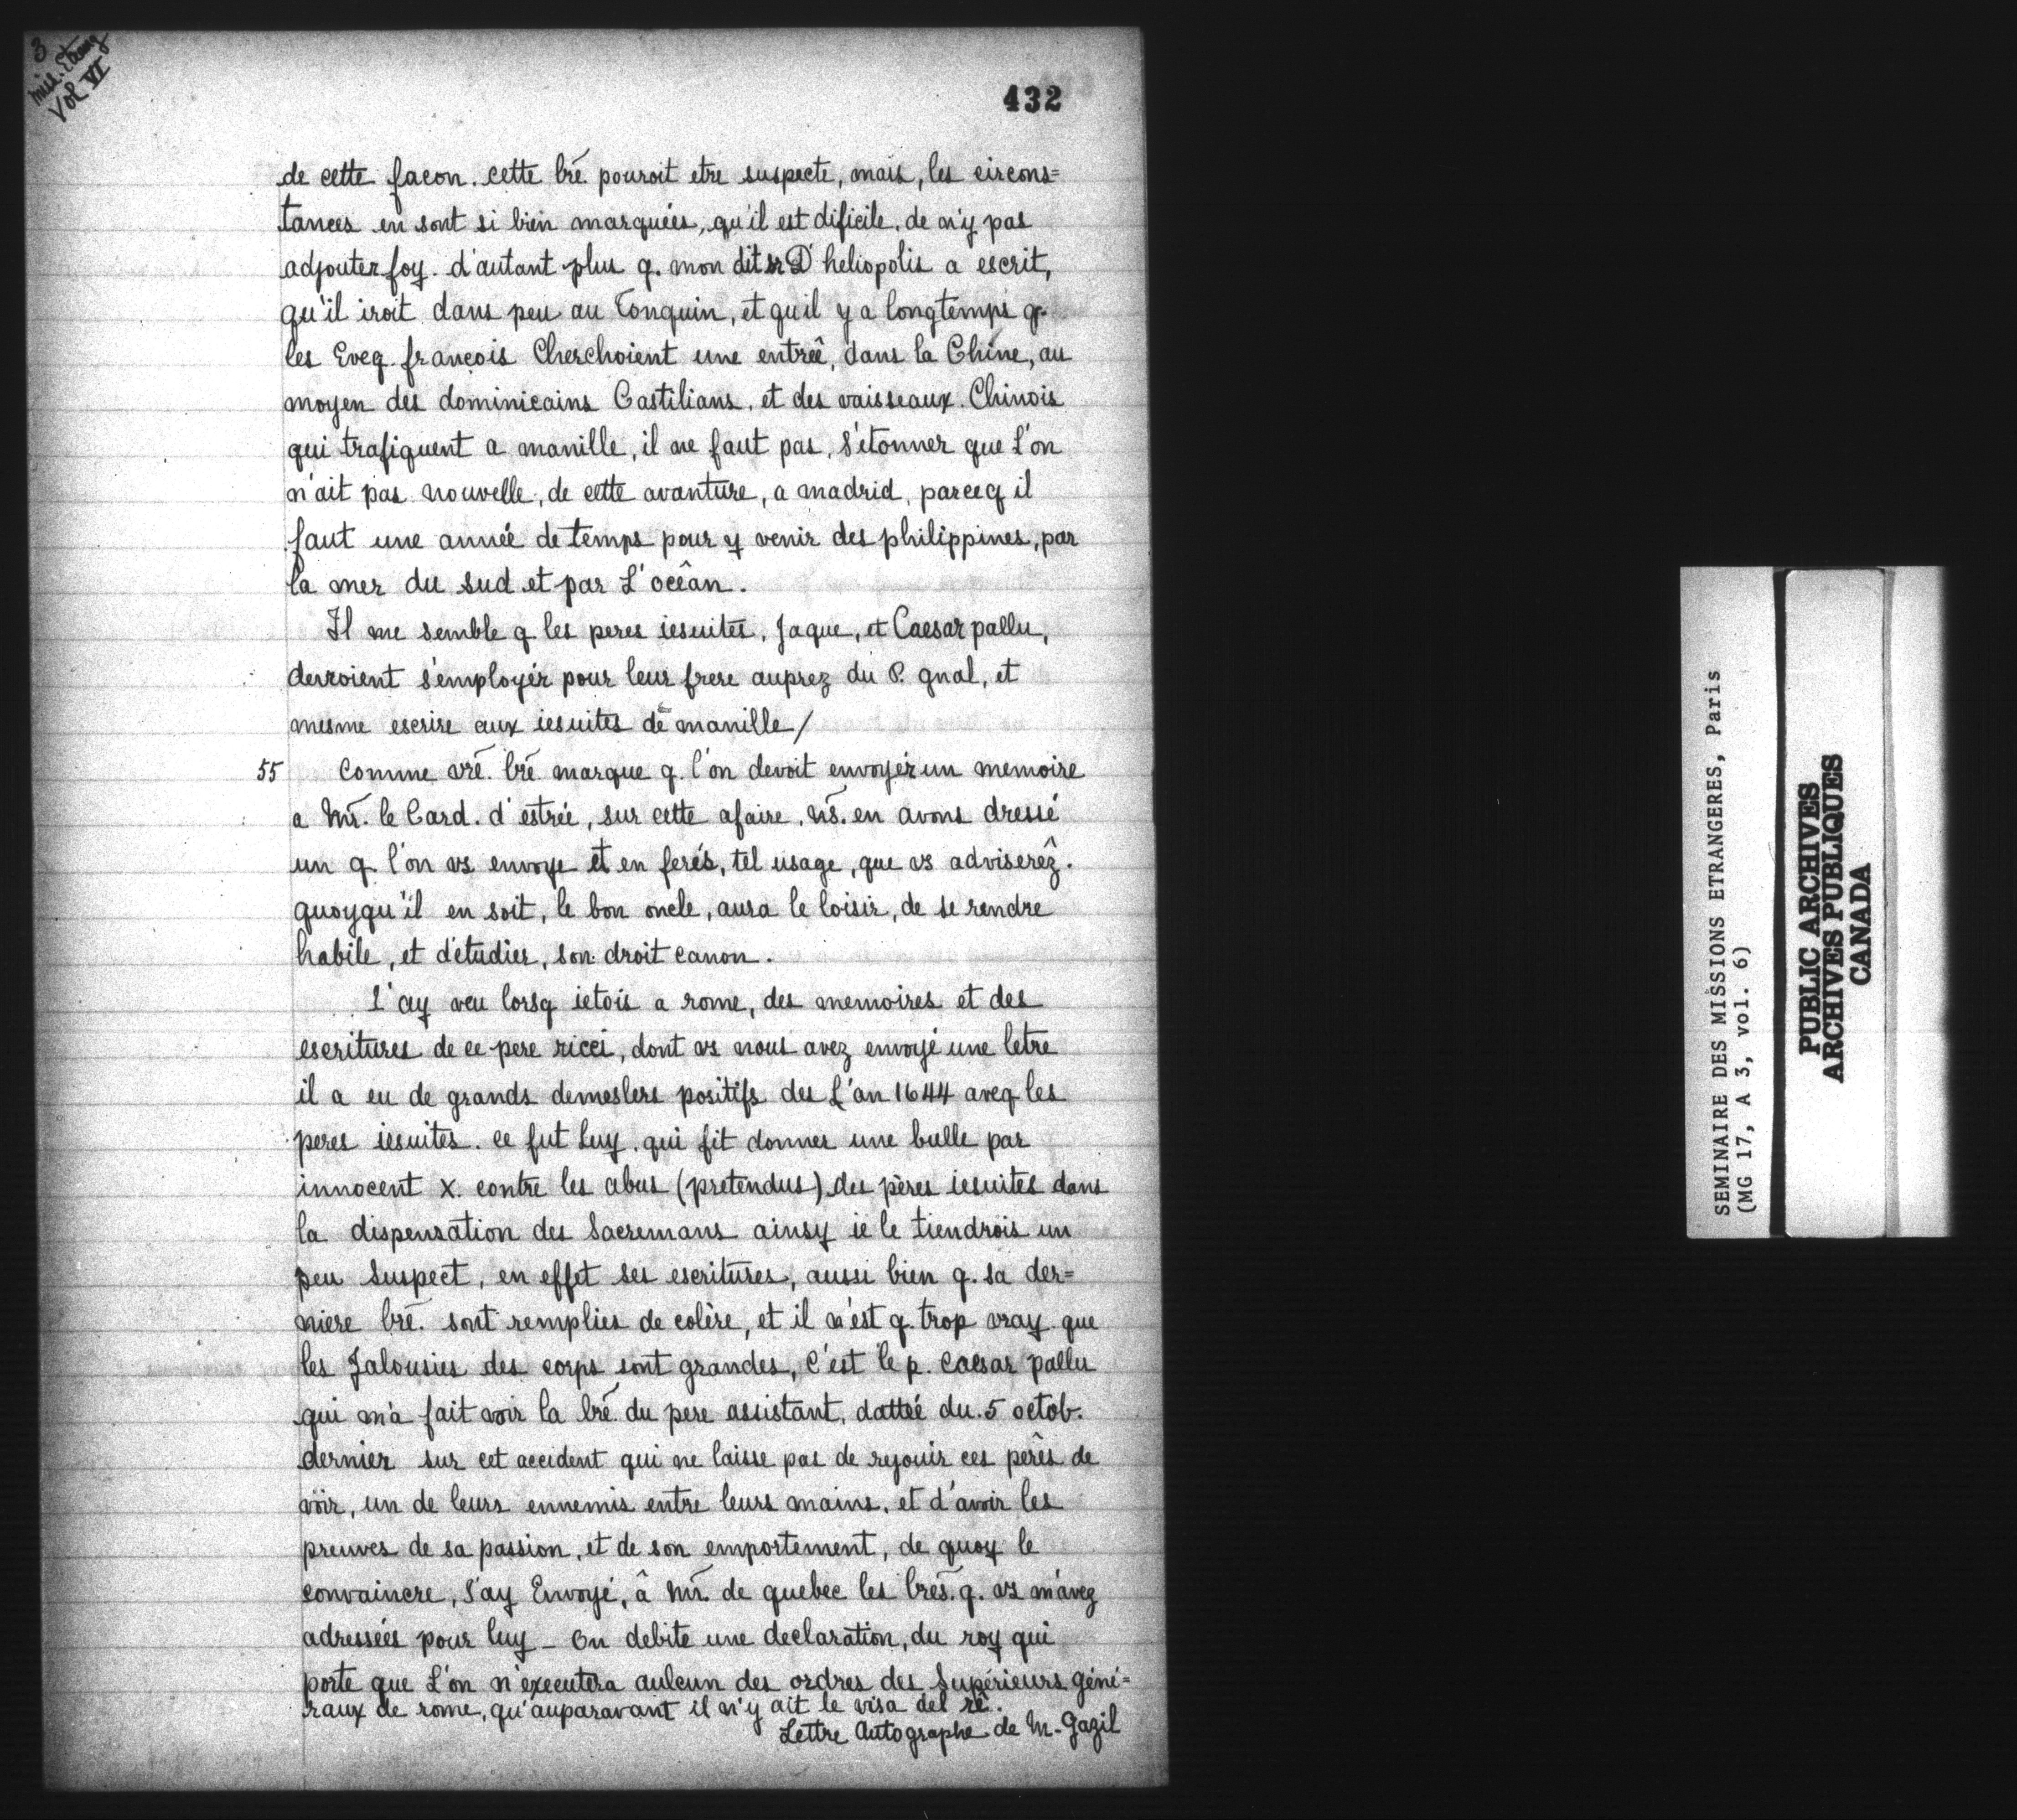 3
Miss. Etrang
Vol VI
432
de cette facon. cette lrē. pouroit etre suspecte, mais, les circons=
tances en sont si bien marquées, qu'il est dificile. de n'y pas
adjouter foy. d'autant plus q. mon dit sr D'heliopolis a escrit,
qu'il iroit dans peu au Tonquin, et quil y a longtemps q.
les Eveq françois Cherchoient une entreê, dans la Chine, au
moyen des dominicains Castilians. et des vaisseaux. Chinois
qui trafiquent a manille, il ne faut pas, s'étonner que L'on
n'ait pas nouvelle, de cette avanture, a madrid, parceq il
faut une année de temps pour y venir des philippines, par
la mer du sud et par L'oceân.
Il me semble q les peres iesuites, Jaque, et Caesar pallu,
devroient s'employér pour leur frere auprez du P. gnal, et
mesme escrire aux iesuites de manille/
55 Comme vrē. lrē marque q. l'on devoit envoyér un memoire
a Mr̄. le Card. d'estrée, sur cette afaire. ns̄. en avons dressé
un q. l'on vs envoye et en ferés, tel usage, que vs adviserêz.
quoyqu'il en soit, le bon oncle, aura le loisir, de se rendre
habile, et d'étudier, son droit canon.
J'ay veu lorsq ietois a rome, des memoires et des
escritures de ce pere ricci, dont vs nous avez envoyé une letre
il a eu de grands demeslers positifs des L'an 1644 aveq les
peres iesuites. ce fut Luy. qui fit donner une bulle par
innocent X. contre les abus (pretendus) des pères iesuites dans
la dispensation des Sacremans ainsy ie le tiendrois un
peu Suspect, en effet ses escritures, aussi bien q. sa der=
niere lrē. sont remplies de colère, et il n'est q. trop vray que
les Jalousies des corps sont grandes, C'est le p. Caesar pallu
qui m'a fait voir la lrē. du pere assistant, dattée du. 5 octob.
dernier sur cet accident qui ne laisse pas de rejouir ces perês de
voir, un de leurs ennemis entre leurs mains. et d'avoir les
preuves de sa passion, et de son emportement, de quoy le
convaincre, J'ay Envoyé, â Mr̄. de quebec les lres̄. q. vs m'avez
adressées pour luy _ On debite une declaration, du roy qui
porte que L'on n'executera aulcun des ordres des Supérieurs géné=
raux de rome, qu'auparavant il n'y ait le visa del rê.
Lettre Autographe de M. Gazil
SEMINAIRE DES MISSIONS ETRANGERES, Paris
(MG 17, A 3, vol. 6)
PUBLIC ARCHIVES
ARCHIVES PUBLIQUES
CANADA